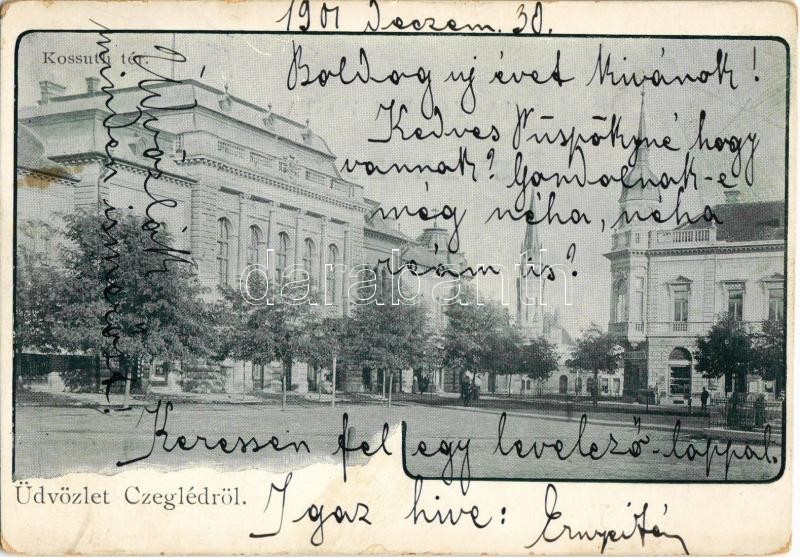 1901 Deczem. 30.
Kossuth tér.
Boldog uj évet kivánok!
Kedves Püspökyné hogy
vannak? Gondolnak-e
még néha, néha
reám is?
Üdvözlik
minden ismerőst!
darabanth
Keressen fel egy levelező-lappal.
Üdvözlet Czeglédről.
Igaz hive: